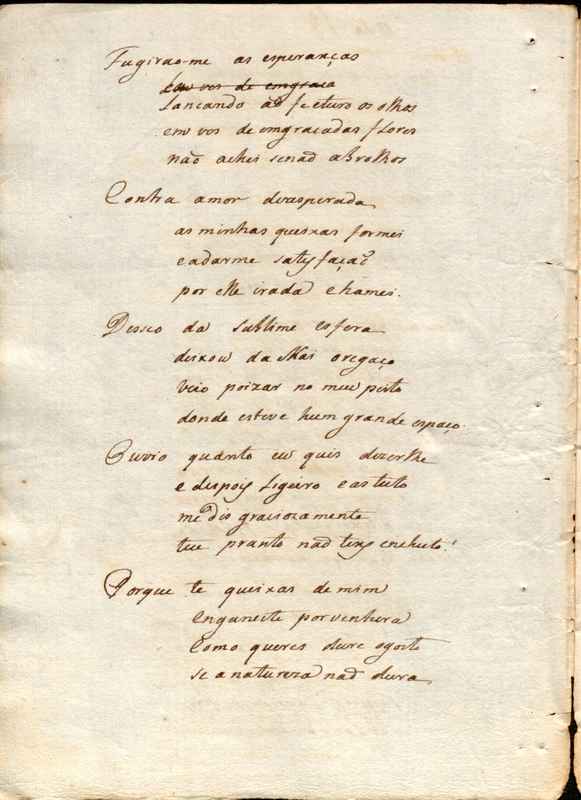 Fugirao-me as esperanças
em ves de engraca
Lancando ao feturo os olhos
em ves de emgracadas flores
não achei senaõ abrolhos
Contra amor dezesperada
as minhas queixas formei
e a darme satysfaçaõ
por elle irada chamei.
Desceo da sublime esfera
deixou da Mai oregaço
veio poizar no meu peito
donde esteve hum grande espaço.
Ouvio quanto eu quis dizerlhe
e despois Ligeiro e astuto
me dis graciozamente
teu pranto naõ tens enchuto!
Porque te queixas de mim
enganeite porventura
Como queres dure o gosto
se a natureza naõ dura